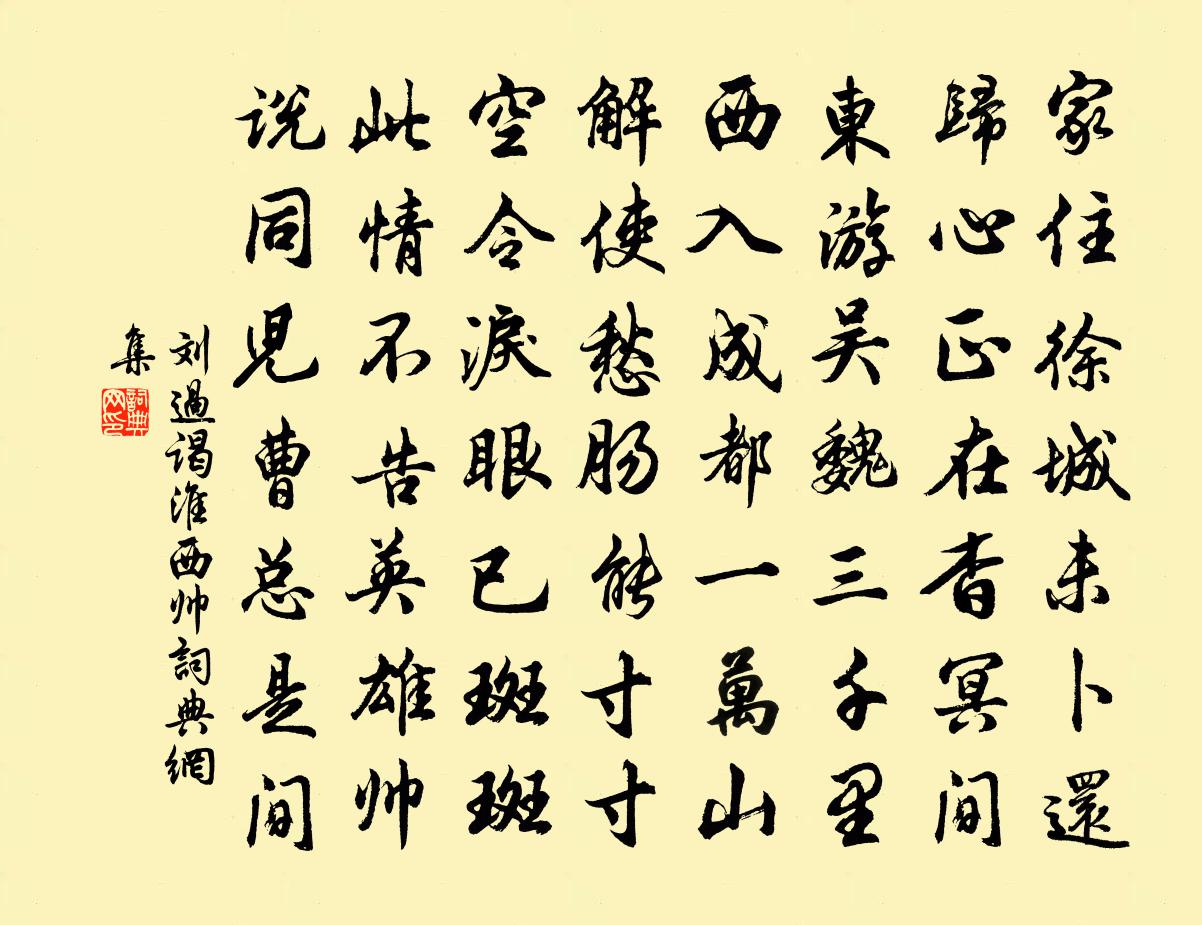 家住徐城未卜還
歸心正在杳冥间
東游吴魏三千里
西入成都一萬山
解使愁肠能寸寸
空令淚眼已斑斑
此情不告英雄帅
说同兒曹总是间
刘過谒淮西帅詞典網
集
詞典网印